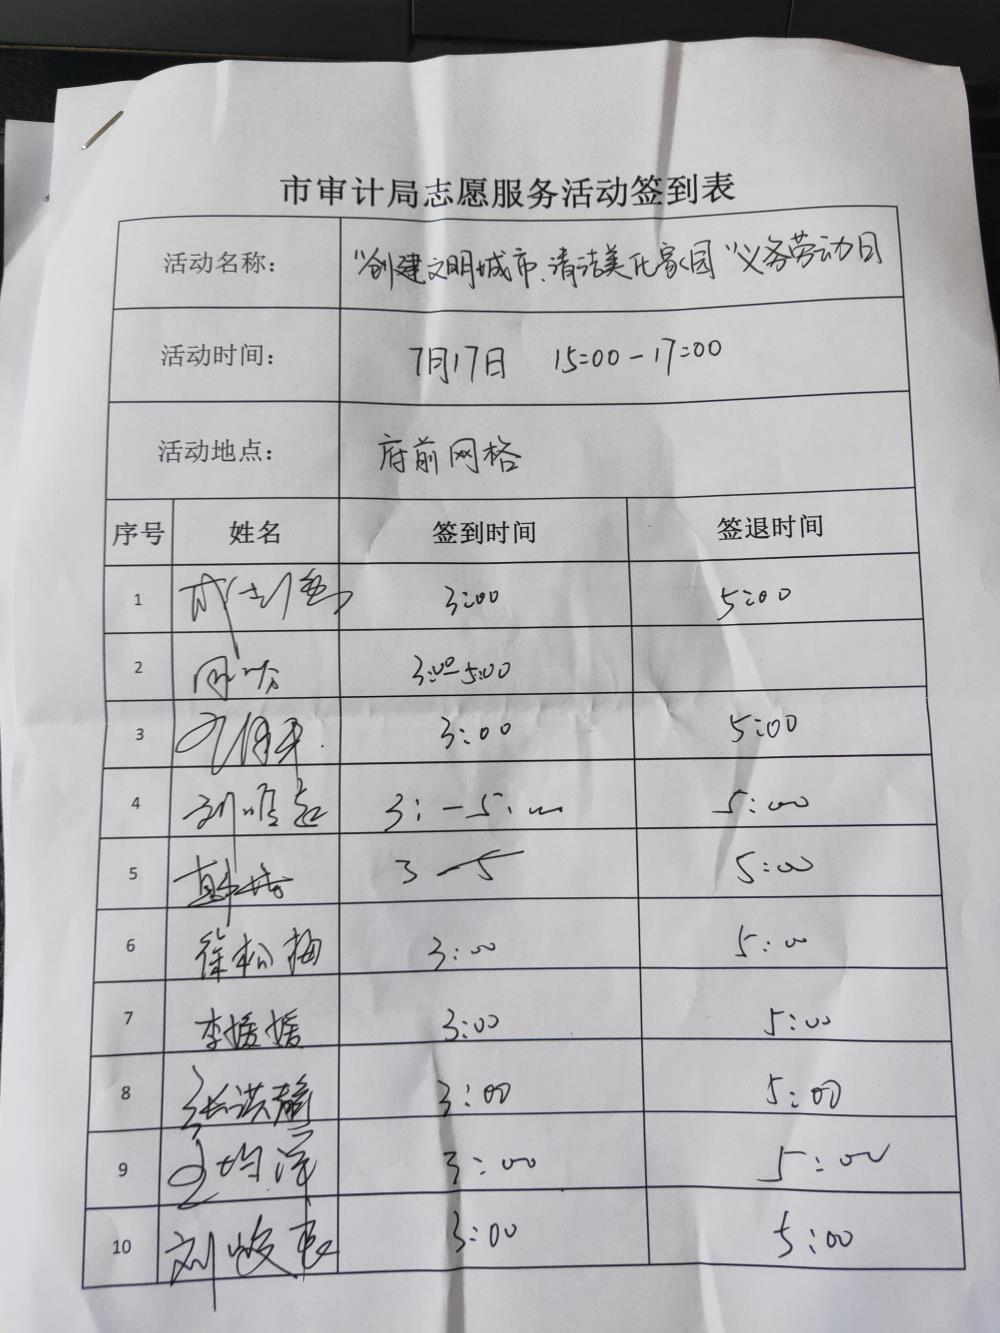 市审计局志愿服务活动签到表
活动名称： "创建文明城市、清洁美化家园"义务劳动日
活动时间： 7月17日 15:00-17:00
活动地点： 府前网格
序号 姓名 签到时间 签退时间
1 3:00 5:00
2 3:00-5:00
3 3:00 5:00
4 3:-5:00 5:00
5 3-5 5:00
6 徐松梅 3:00 5:00
7 李媛媛 3:00 5:00
8 张洪 3:00 5:00
9 王均洋 3:00 5:00
10 刘 3:00 5:00